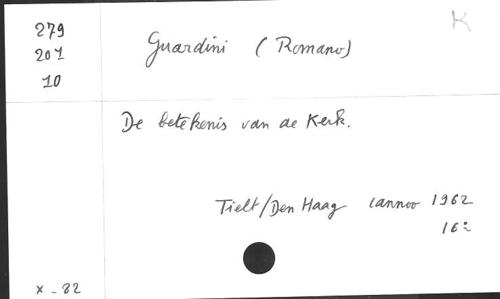 K
279
201
10
Guardini (Romano)
De betekenis van de Kerk.
Tielt/Den Haag Lannoo 1962
16:
x - 82